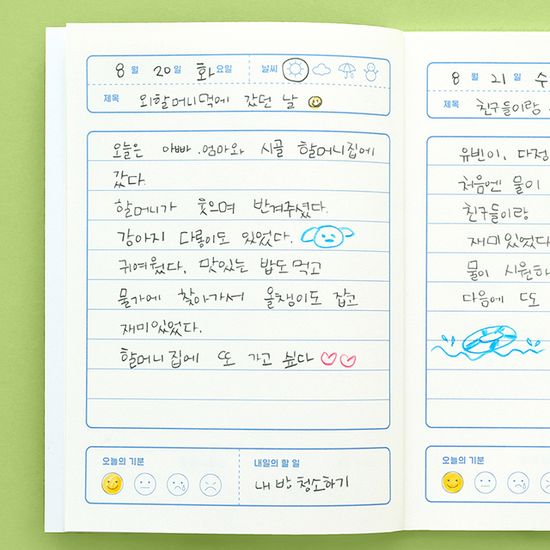 8월 20일 화요일 날씨
제목 외할머니댁에 갔던 날
오늘은 아빠.엄마와 시골 할머니집에
갔다.
할머니가 웃으며 반겨주셨다.
강아지 다롱이도 있었다.
귀여웠다. 맛있는 밥도 먹고
물가에 찾아가서 올챙이도 잡고
재미있었다.
할머니집에 또 가고 싶다
오늘의 기분
내일의 할 일
내 방 청소하기
8월 21일 수
제목 친구들이랑
유빈이, 다정
처음엔 물이
친구들이랑
재미있었다
물이 시원하
다음에 또
오늘의 기분